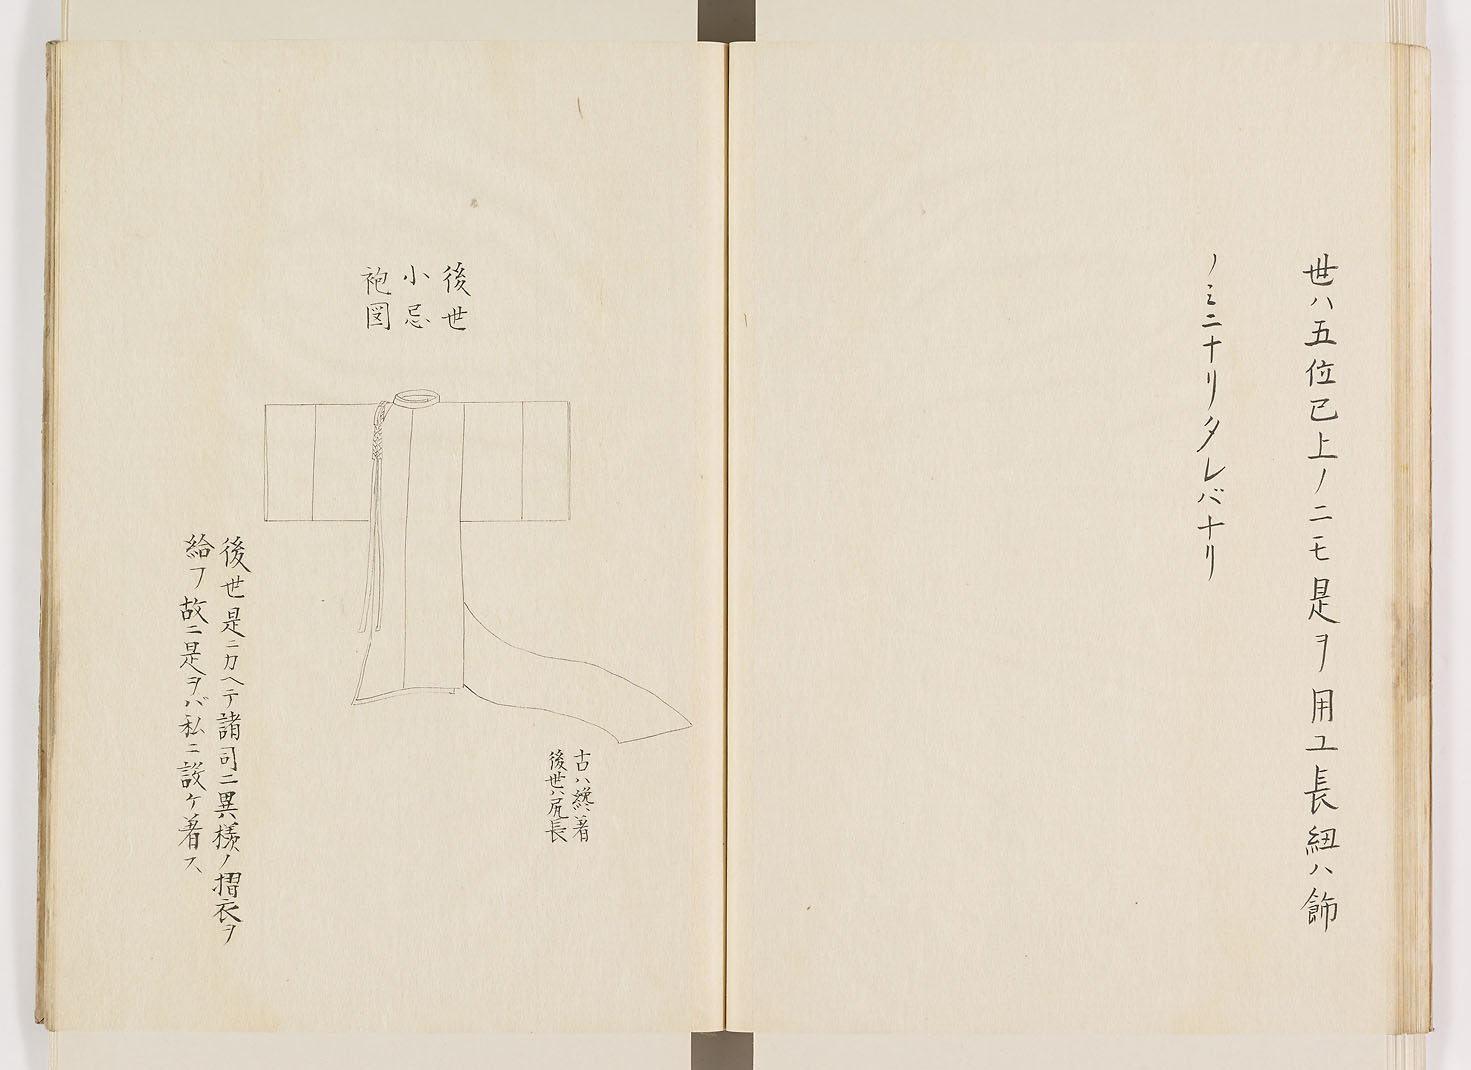 世ハ五位已上ノニモ是ヲ用エ長紐ハ飾
ノミニナリタレバナリ
後世
小忌
袍図
古ハ纔著
後世ハ尻長
後世是ニカヘテ諸司ニ異様ノ摺衣ヲ
給フ故ニ是ヲバ私ニ設ケ著ス